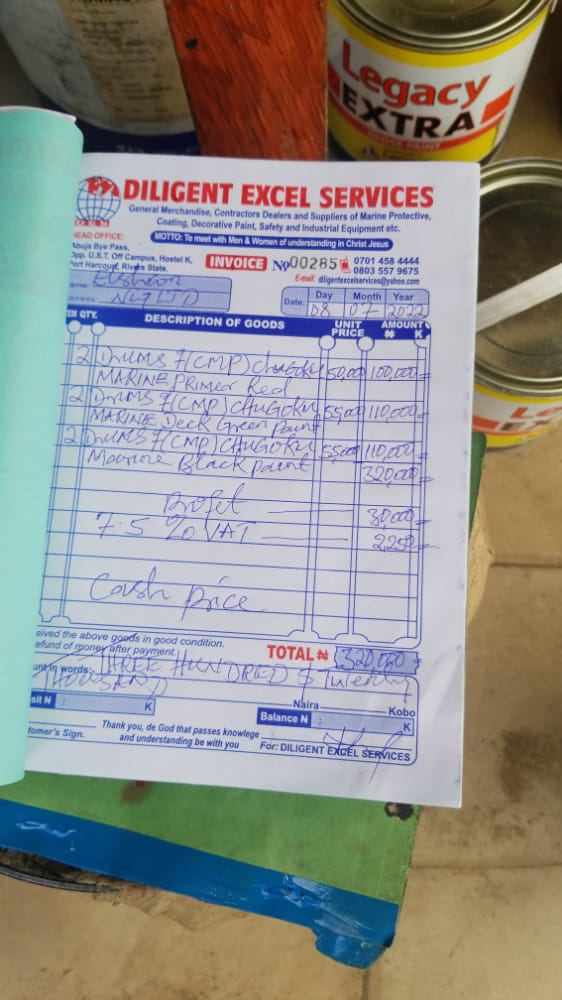 Legacy
EXTRA
GLOSS PAINT
DILIGENT EXCEL SERVICES
General Merchandise, Contractors Dealers and Suppliers of Marine Protective,
Coating, Decorative Paint, Safety and Industrial Equipment etc.
MOTTO: To meet with Men & Women of understanding in Christ Jesus
EAD OFFICE:
Abuja Bye Pass,
Opp. U.S.T. Off Campus, Hostel K,
Port Harcourt, Rivers State.
INVOICE No 00285
0701 458 4444
0803 557 9675
E-mail: diligentexcelservices@yahoo.com
NIG LTD
Date: Day Month Year
08 07 2022
QTY. DESCRIPTION OF GOODS UNIT PRICE AMOUNT ₦ K
2 Drums 7(CMP) Chugoku 50,000 100,000=
MARINE PRIMER Red
2 Drums 7(CMP) CHUGOKU 55,000 110,000=
MARINE Deck Green Paint
2 DRUMS 7(CMP) CHUGOKU 55,000 110,000=
Marine Black paint 320,000=
Profet 30,000=
7.5 % VAT 2,250=
Cash price
eived the above goods in good condition.
efund of money after payment.
TOTAL ₦ 320,000=
unt in words: THREE HUNDRED $ Twenty
THOUSAND
Naira Kobo
sit N : K
Balance N : K
Thank you, de God that passes knowlege
and understanding be with you
tomer's Sign.
For: DILIGENT EXCEL SERVICES
Le